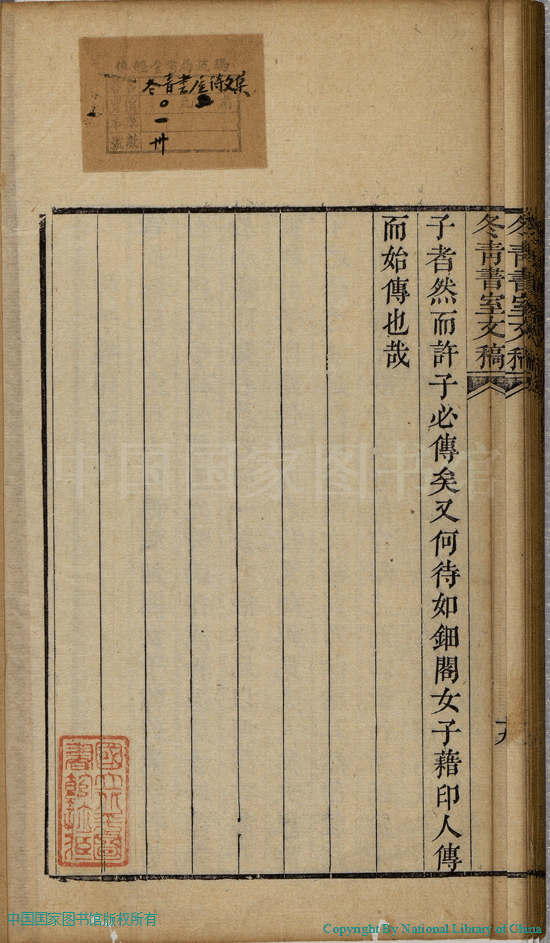 冬青書室文稿
子者然而許子必傳矣又何待如鈿閣女子藉印人傳
而始傳也哉
冬青書屋詩文集
〇
一
卅
中国国家图书馆
中国国家图书馆版权所有
Copyright By National Library of China